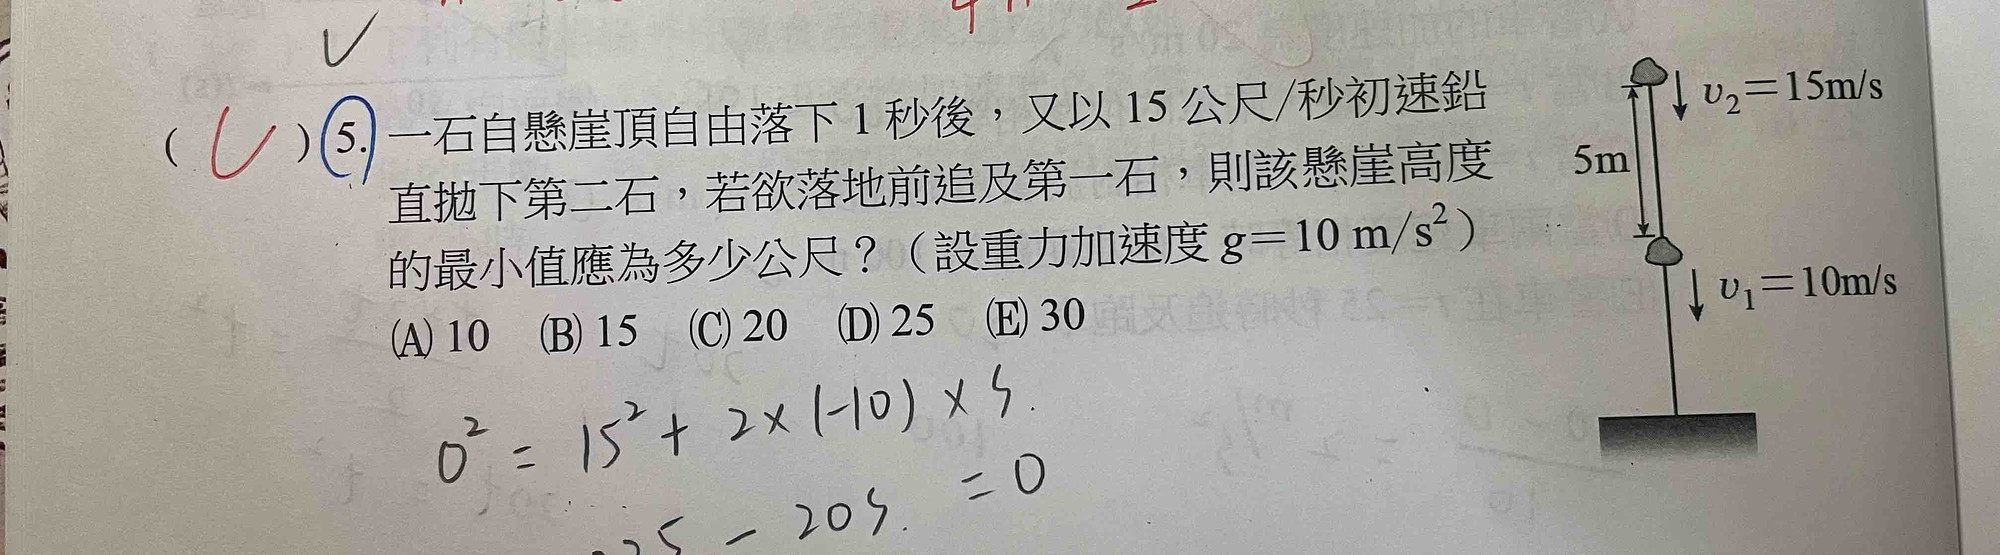 ( ) 5. 一石自懸崖頂自由落下 1 秒後，又以 15 公尺/秒初速鉛
直拋下第二石，若欲落地前追及第一石，則該懸崖高度
的最小值應為多少公尺？（設重力加速度 g＝10 m/s²）
(A) 10 (B) 15 (C) 20 (D) 25 (E) 30
v₂＝15m/s
5m
v₁＝10m/s
0² = 15² + 2×(-10)×S.
25 - 20S. = 0